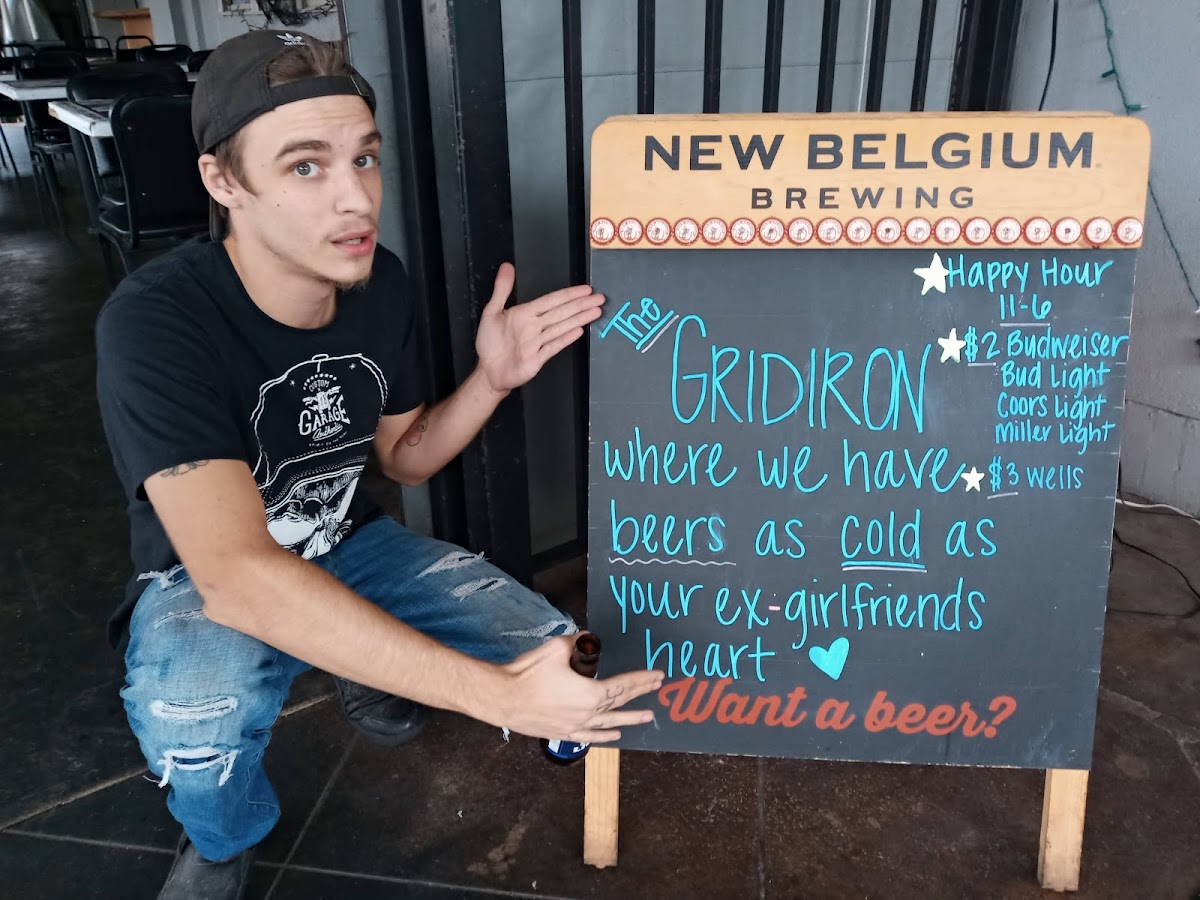 NEW BELGIUM
BREWING
Happy Hour
11-6
$2 Budweiser
Bud Light
Coors Light
Miller Light
$3 wells
The
GRIDIRON
where we have
beers as cold as
your ex-girlfriends
heart
Want a beer?
CUSTOM
GARAGE
Authentic